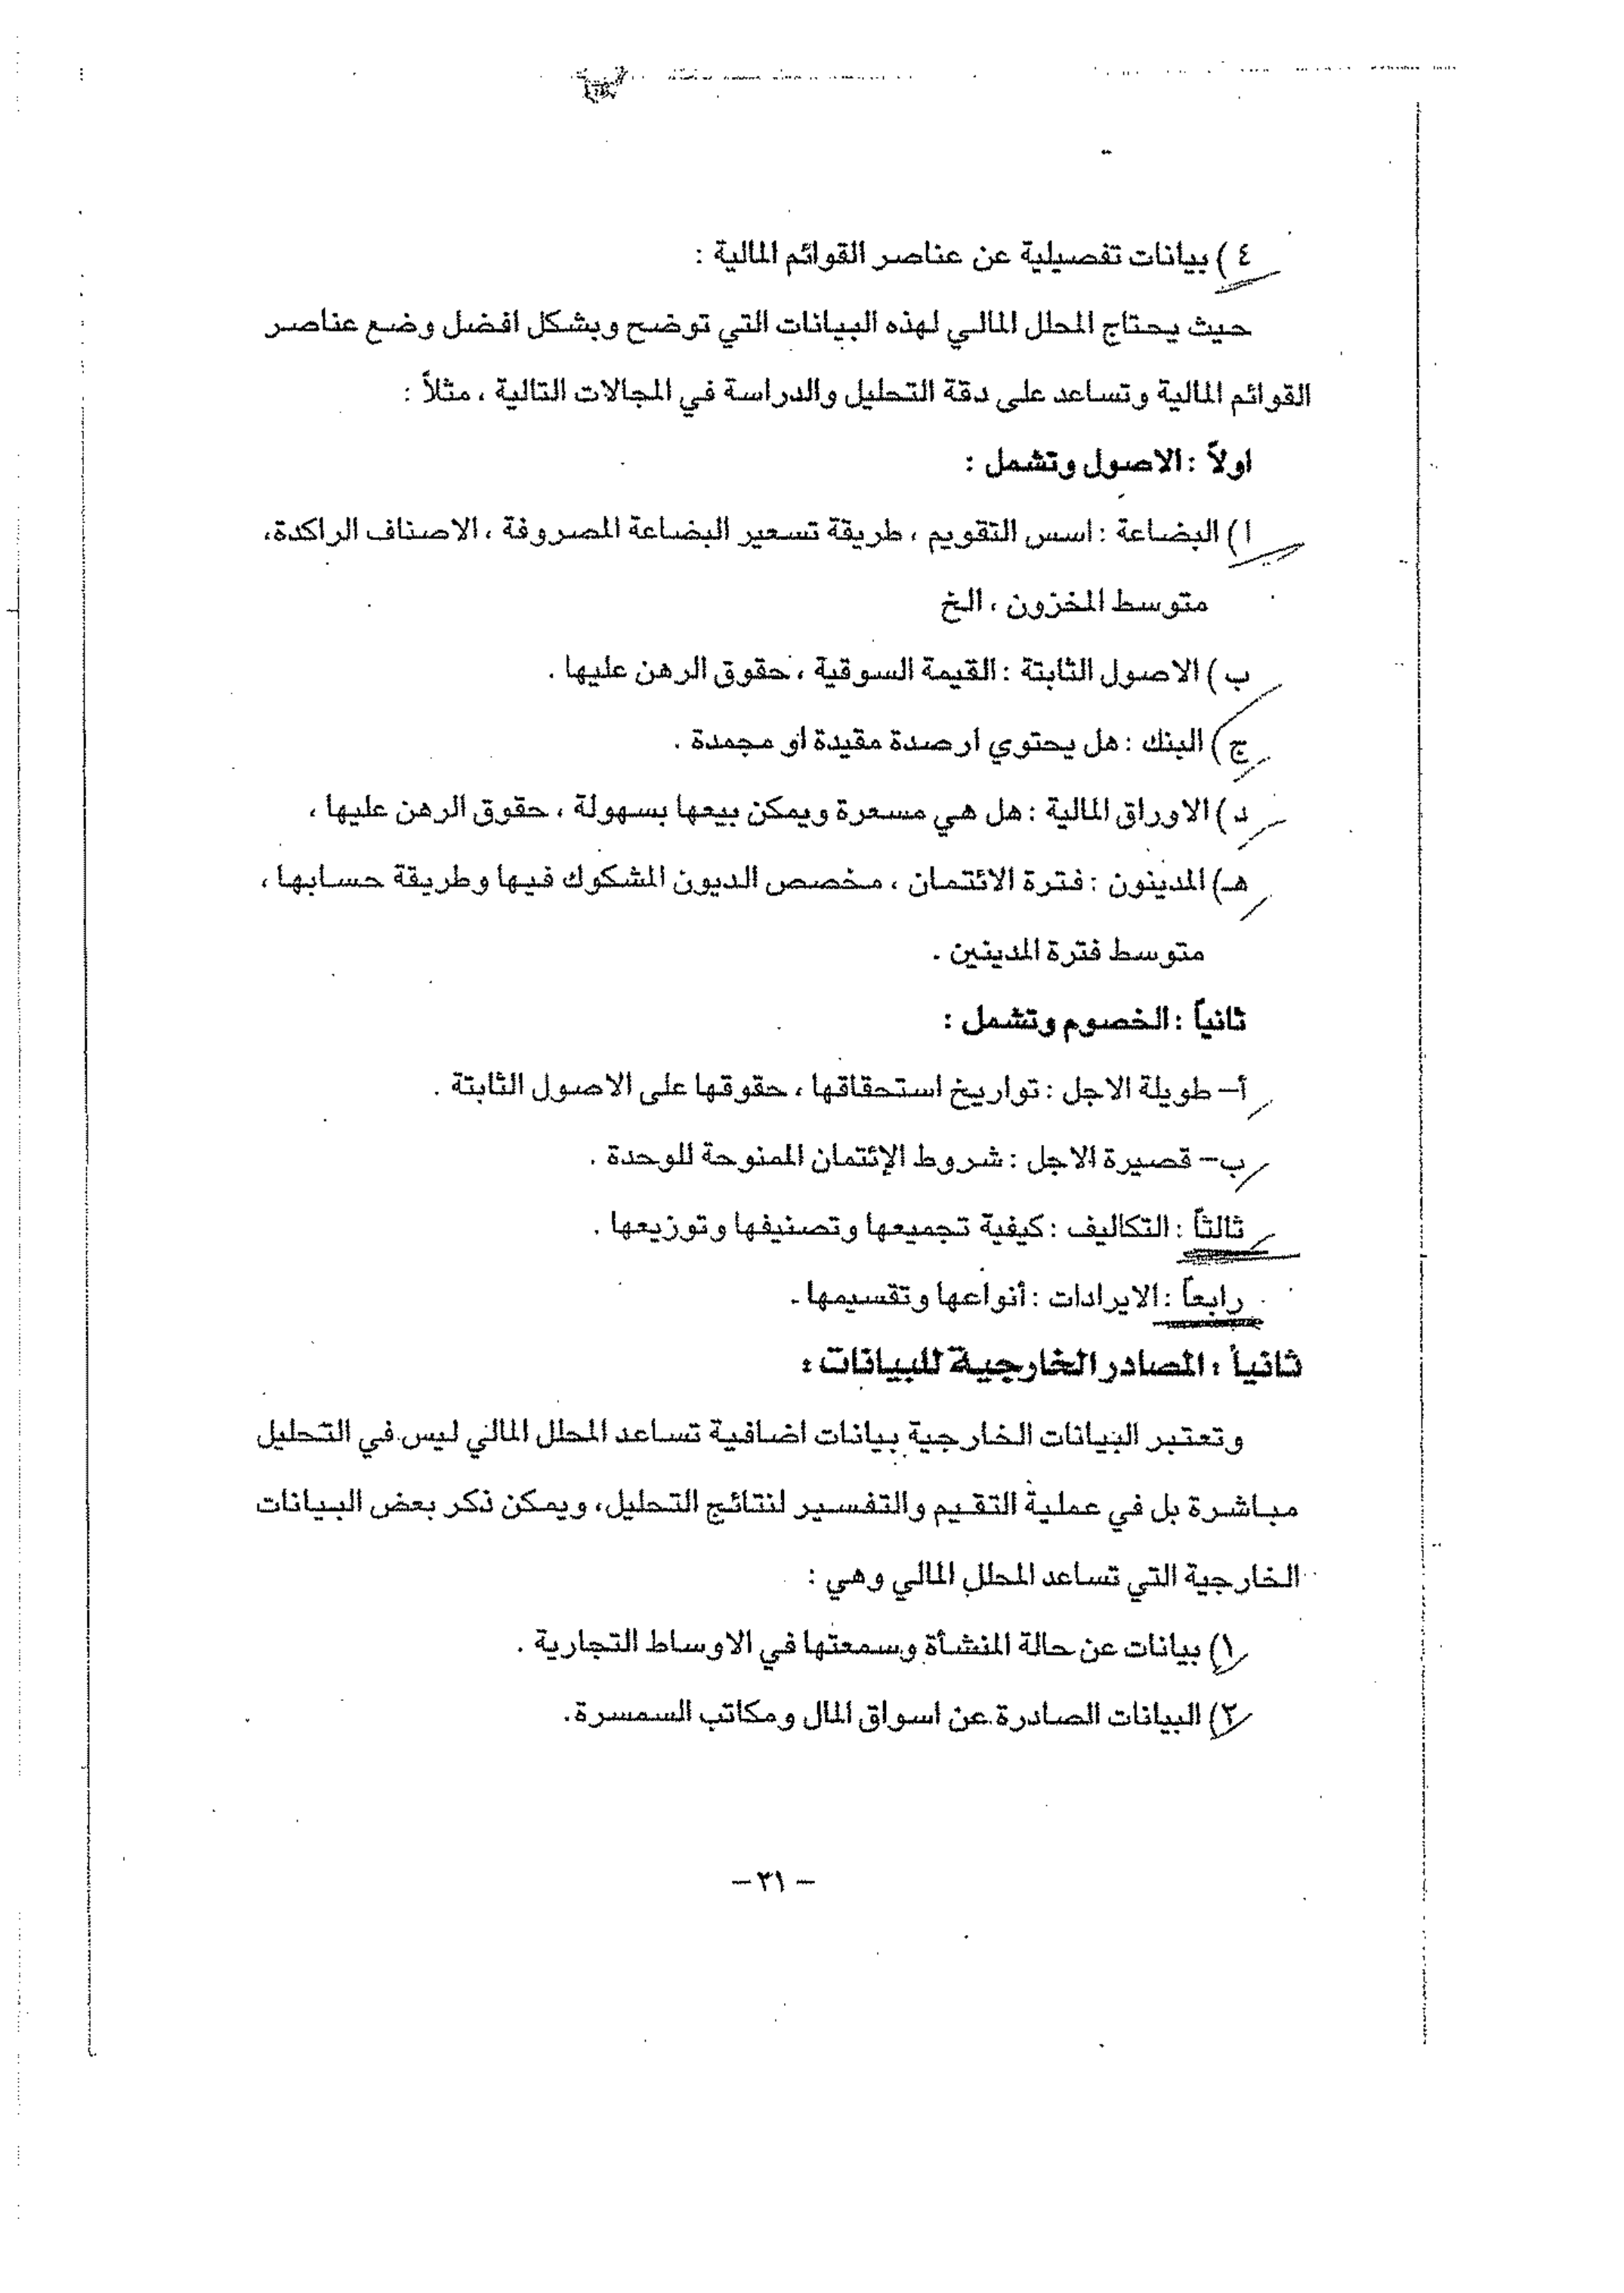 ٤ ) بيانات تفصيلية عن عناصر القوائم المالية :
حيث يحتاج المحلل المالي لهذه البيانات التي توضح وبشكل افضل وضع عناصر
القوائم المالية وتساعد على دقة التحليل والدراسة في المجالات التالية ، مثلاً :
اولاً : الاصول وتشمل :
ا ) البضاعة : اسس التقويم ، طريقة تسعير البضاعة المصروفة ، الاصناف الراكدة،
متوسط المخزون ، الخ
ب ) الاصول الثابتة : القيمة السوقية ، حقوق الرهن عليها .
ج ) البنك : هل يحتوي ارصدة مقيدة او مجمدة .
د ) الاوراق المالية : هل هي مسعرة ويمكن بيعها بسهولة ، حقوق الرهن عليها ،
هـ) المدينون : فترة الائتمان ، مخصص الديون المشكوك فيها وطريقة حسابها ،
متوسط فترة المدينين .
ثانياً : الخصوم وتشمل :
أ– طويلة الاجل : تواريخ استحقاقها ، حقوقها على الاصول الثابتة .
ب– قصيرة الاجل : شروط الإئتمان الممنوحة للوحدة .
ثالثاً : التكاليف : كيفية تجميعها وتصنيفها وتوزيعها .
رابعاً : الايرادات : أنواعها وتقسيمها.
ثانياً : المصادر الخارجية للبيانات :
وتعتبر البيانات الخارجية بيانات اضافية تساعد المحلل المالي ليس في التحليل
مباشرة بل في عملية التقيم والتفسير لنتائج التحليل، ويمكن ذكر بعض البيانات
الخارجية التي تساعد المحلل المالي وهي :
١) بيانات عن حالة المنشأة وسمعتها في الاوساط التجارية .
٢) البيانات الصادرة عن اسواق المال ومكاتب السمسرة.
– ٣١ –